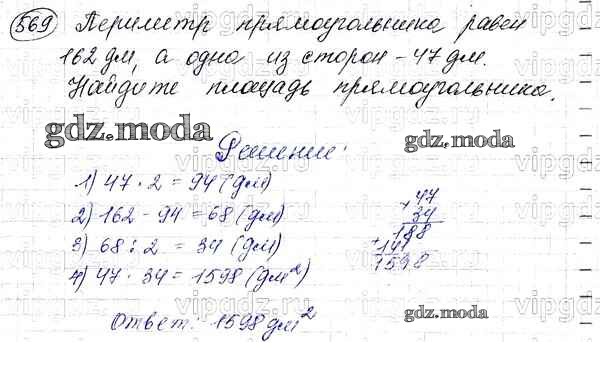 569 Периметр прямоугольника равен
162 дм, а одна из сторон - 47 дм.
Найдите площадь прямоугольника.
gdz.moda
gdz.moda
Решение:
1) 47 · 2 = 94 (дм)
2) 162 - 94 = 68 (дм)
3) 68 : 2 = 34 (дм)
4) 47 · 34 = 1598 (дм²)
47
34
188
+ 141
1598
Ответ: 1598 дм²
gdz.moda